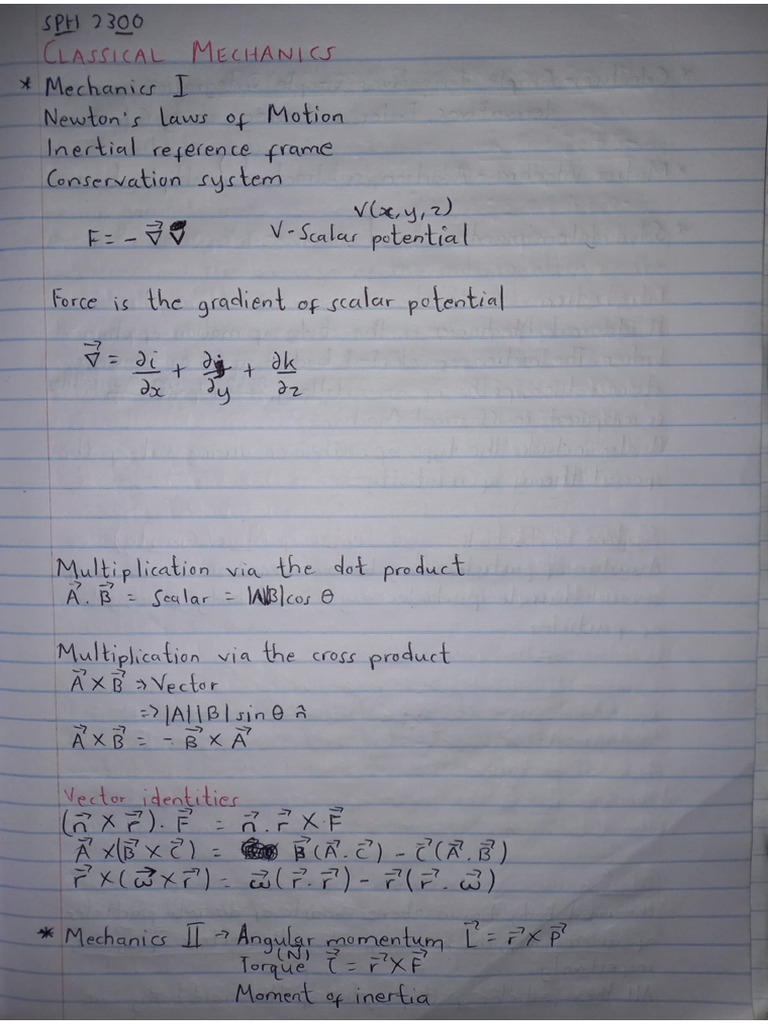 SPH 2300
CLASSICAL MECHANICS
* Mechanics I
Newton's Laws of Motion
Inertial reference frame
Conservation system
V(x,y,z)
F = - ∇⃗ V - Scalar potential
Force is the gradient of scalar potential
∇⃗ = ∂i/∂x + ∂j/∂y + ∂k/∂z
Multiplication via the dot product
A⃗ . B⃗ = Scalar = |A||B|cos θ
Multiplication via the cross product
A⃗ × B⃗ ⇒ Vector
⇒ |A||B| sin θ n̂
A⃗ × B⃗ = - B⃗ × A⃗
Vector identities
(n⃗ × r⃗). F⃗ = n⃗ . r⃗ × F⃗
A⃗ × (B⃗ × C⃗) = B⃗(A⃗ . C⃗) - C⃗(A⃗ . B⃗)
r⃗ × (ω⃗ × r⃗) = ω⃗(r⃗ . r⃗) - r⃗(r⃗ . ω⃗)
* Mechanics II → Angular momentum L⃗ = r⃗ × P⃗
Torque (N) τ⃗ = r⃗ × F⃗
Moment of inertia